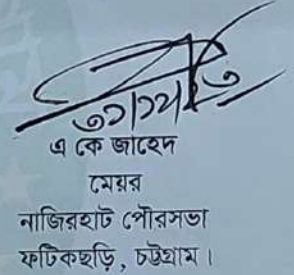 এ কে জাহেদ
মেয়র
নাজিরহাট পৌরসভা
ফটিকছড়ি, চট্টগ্রাম।